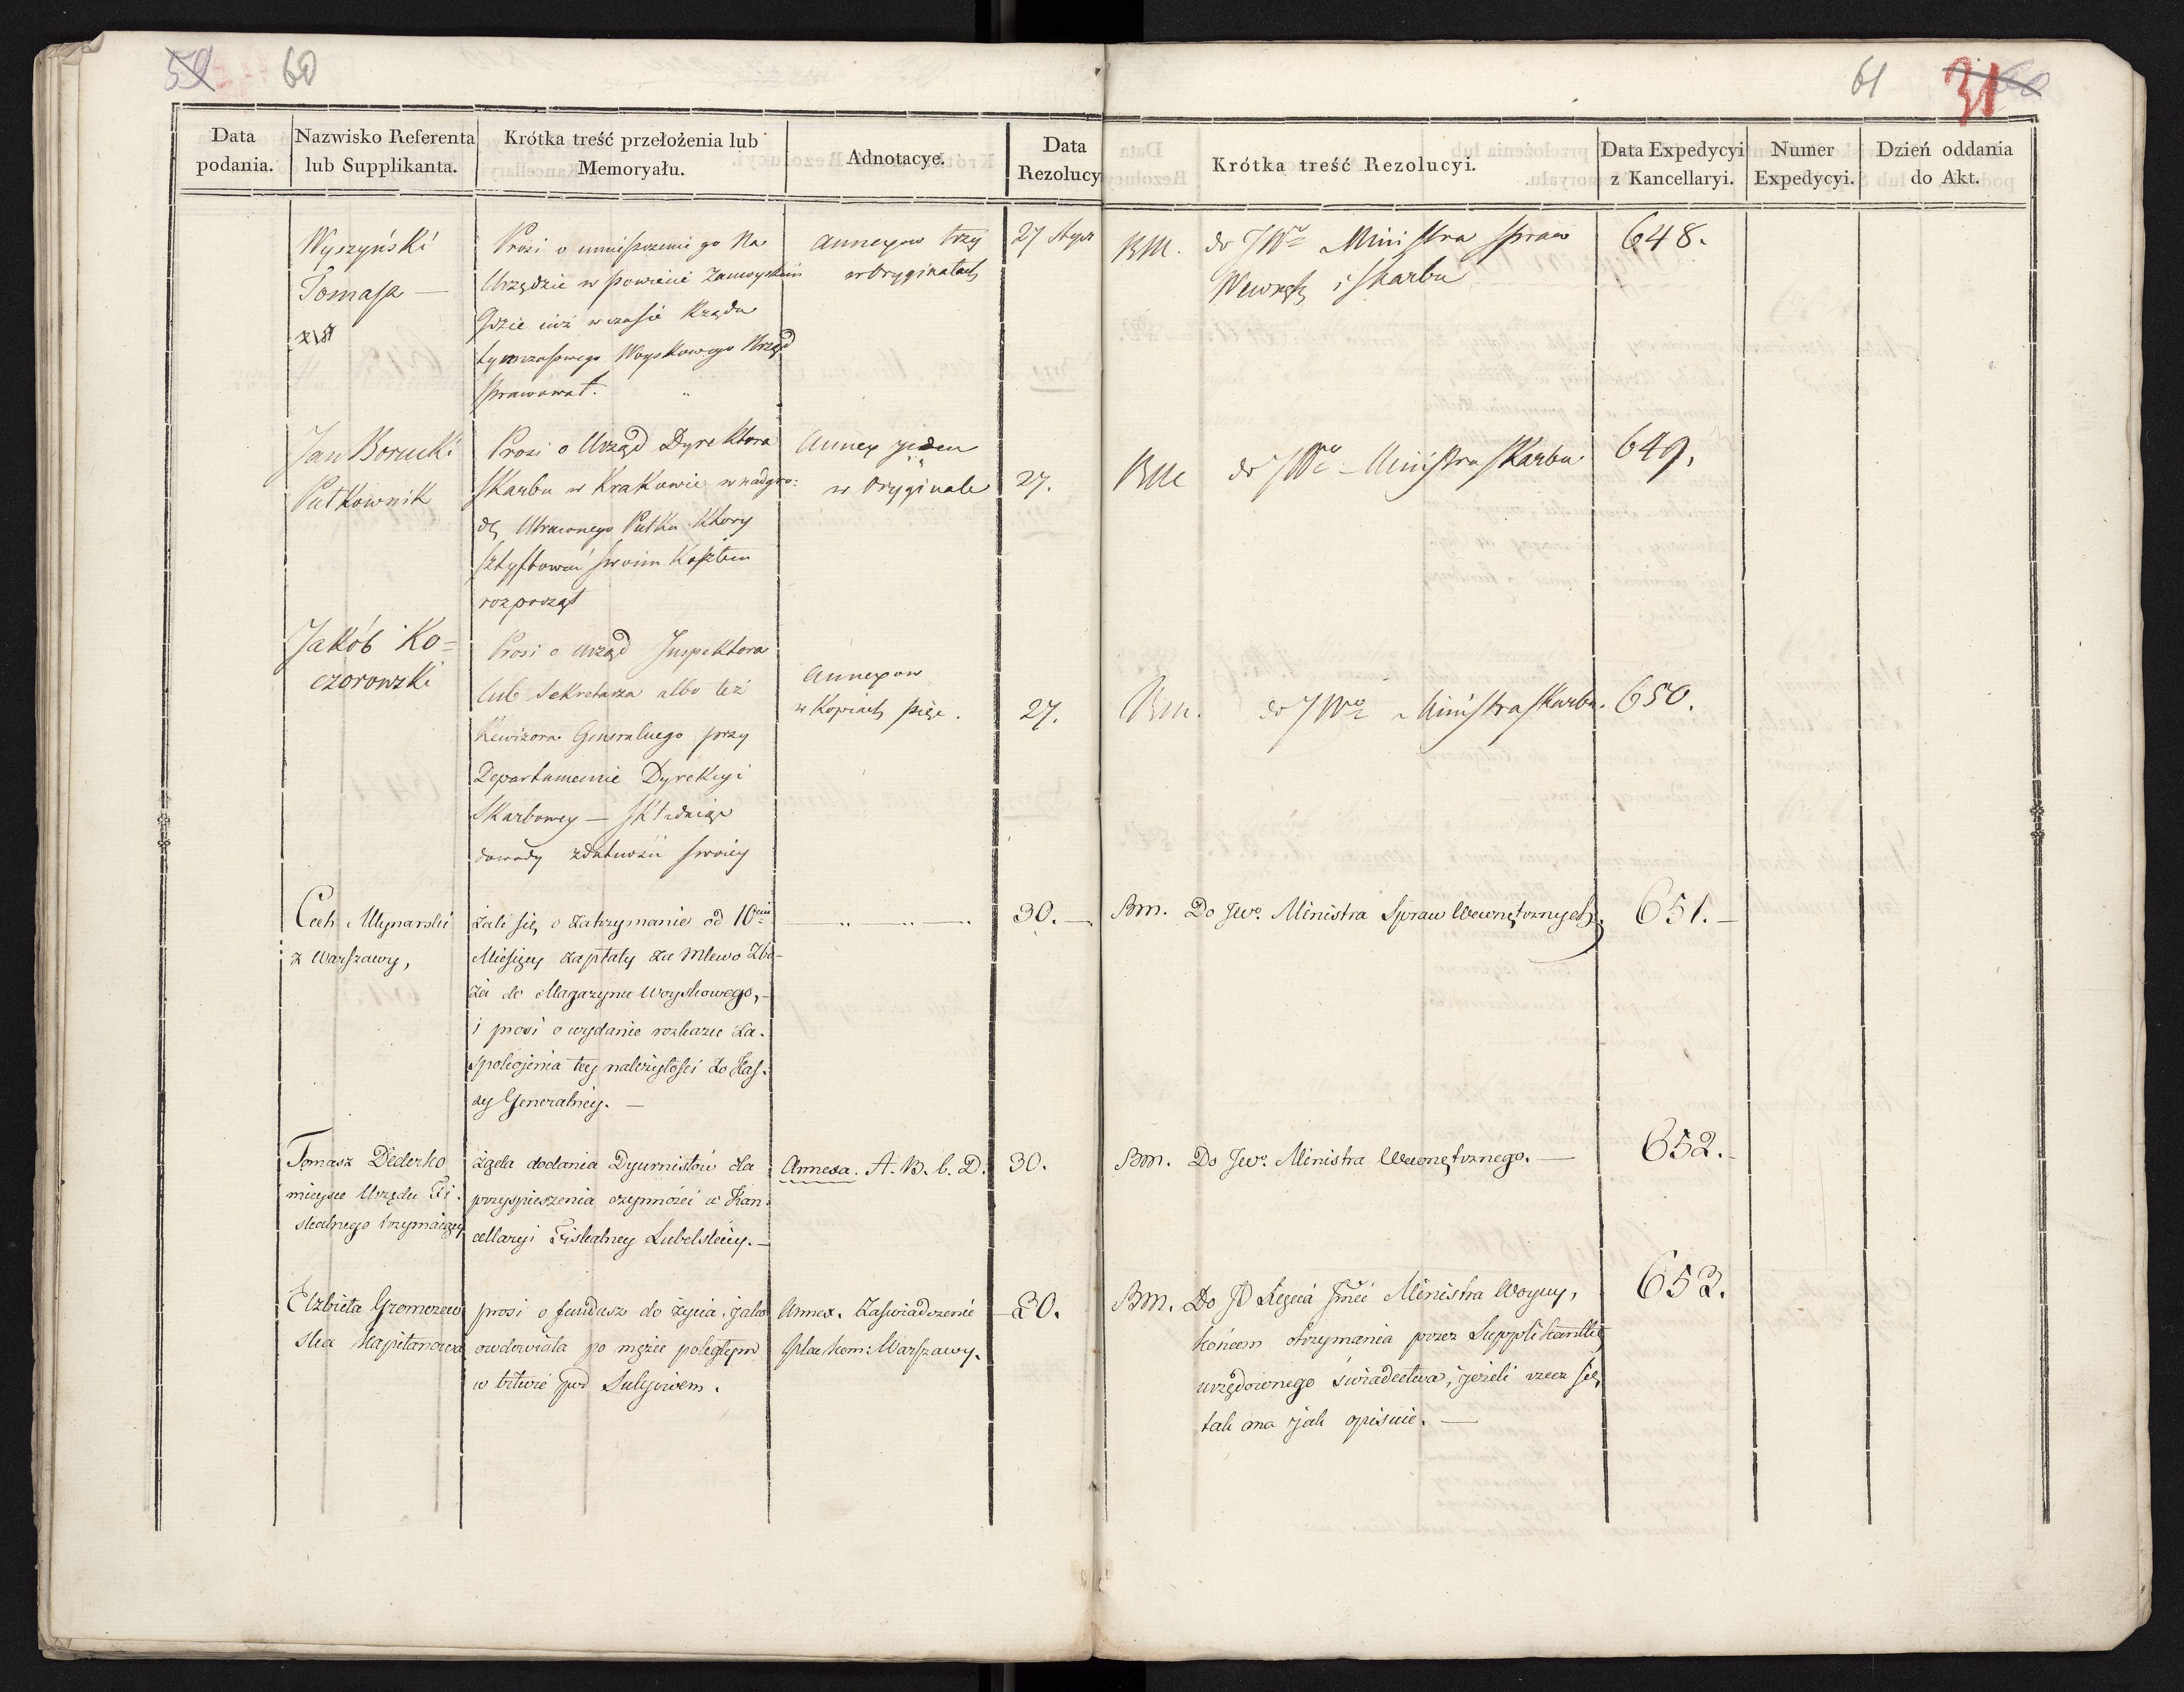 59 60
61 31 60
Data podania.
Nazwisko Referenta lub Supplikanta.
Krótka treść przełożenia lub Memoryału.
Adnotacye.
Data Rezolucy
Krótka treść Rezolucyi.
Data Expedycyi z Kancellaryi.
Numer Expedycyi.
Dzień oddania do Akt.
Wyszyński
Tomasz —
Prosi o umieszczenie go na
Urzędzie w powiecie Zamoyskim
Gdzie iuż w czasie Rządu
tymczasowego Woyskowego Urząd
sprawował.
Annexow trzy
w Oryginałach
27 Stycz
BM. do JWo Ministra spraw
Wewnętz i skarbu
648.
Jan Borucki
Pułkownik
Prosi o Urząd Dyrektora
Skarbu w Krakowie w nadgro:
dę Utraconego Pułku ktory
sztyftować swoim Kosztem
rozpoczął
Annex jeden
w Oryginale
27.
BM do JWo Ministra Skarbu
649.
Jakób Ko=
czorowzki
Prosi o Urząd Inspektora
lub Sekretarza albo też
Rewizora Generalnego przy
Departamencie Dyrekcyi
Skarbowey — Składaiąc
dowody zdatności swoiey
Annexow
w Kopiach pięć.
27.
BM. do JWo Ministra Skarbu.
650.
Cech Młynarski
z Warszawy,
żali się o zatrzymanie od 10ciu
Miesięcy zapłaty za Mlewo Zbo-
ża do Magazynu Woyskowego,-
i prosi o wydanie rozkazu za-
spokojenia tey należytości do Kas-
sy Generalney. —
30.—
Bm. Do Jwo. Ministra Spraw Wewnętrznych.
651.—
Tomasz Dederko
mieysce Urzędu Fi-
skalnego trzymaiący
żąda dodania Dyurnistów dla
przyspieszenia czynności w Kan-
cellaryi Fiskalney Lubelskiey.—
Annexa. A. B. C. D.
30.
Bm. Do Jwo. Ministra Wewnętrznego. —
652.-
Elżbieta Gromczew
ska Kapitanowa
prosi o fundusz do życia, jako
owdowiała po mężu poległym
w bitwie pod Sulejowem.
Annex. Zaświadczenie
Plac kom: Warszawy.
30.
Bm. Do JO Xięcia Jmći Ministra Woyny,
końcem otrzymania przez Supplikantkę
urzędownego świadectwa, jeżeli rzecz się
tak ma jak opisuie. —
653.